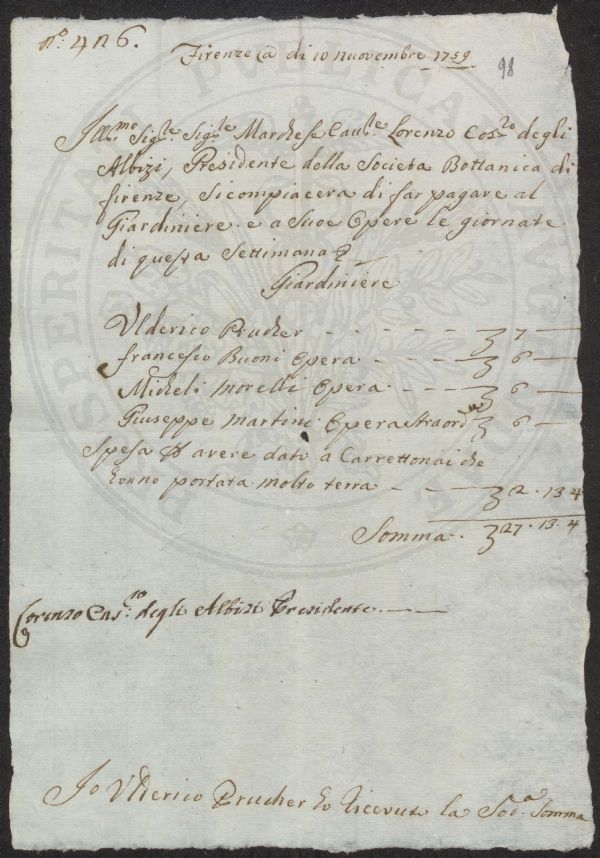 nº. 426.
Firenze @ di 10 Nuovembre 1759
98
Ill.mo Sig.re Sig.re Marchese Cau.re Lorenzo Cos.zo degli
Albizi, Presidente della Societa Bottanica di
firenze, Si compiacera di far pagare al
Giardiniere e a Suoe Opere le giornate
di questa Settimana
Giardiniere
Ulderico Prucher 7
francesco Buoni Opera 6
Micheli Morelli Opera 6
Giuseppe Martini Opera Straord 6
Spesa avere dato a Carrettonai che
Ionno portata molto terra 2.13.4
Somma. 27.13.4
Lorenzo Cas.zo degli Albizi Presidente
Io Ulderico Prucher Ho ricevuto la Sod.a Somma
PUBLICAE